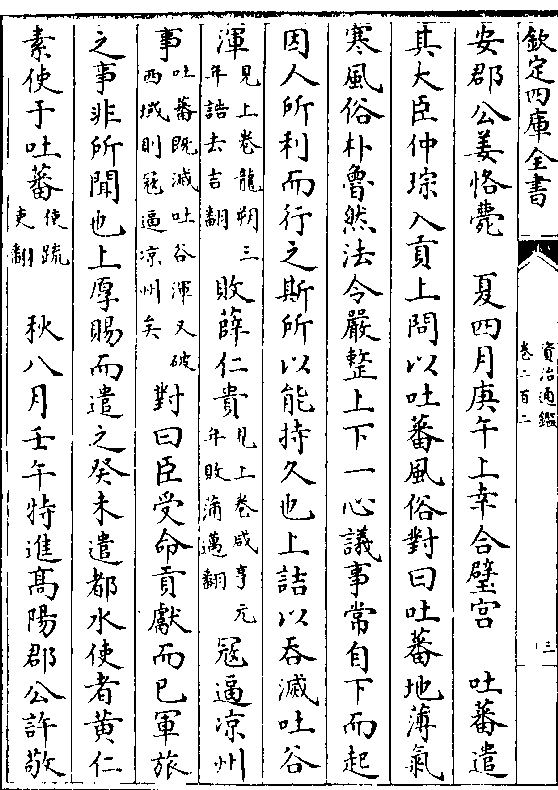 欽定四庫全書
資治通鑑
卷二百二
三
安郡公姜恪薨　夏四月庚午上幸合璧宫　吐蕃遣
其大臣仲琮入貢上問以吐蕃風俗對曰吐蕃地薄氣
寒風俗朴魯然法令嚴整上下一心議事常自下而起
因人所利而行之斯所以能持久也上詰以吞滅吐谷
渾見上卷龍朔三年詰去吉翻敗薛仁貴見上卷咸亨元年敗蒲邁翻寇逼凉州
事吐蕃既滅吐谷渾又破西域則寇逼凉州矣對曰臣受命貢獻而已軍旅
之事非所聞也上厚賜而遣之癸未遣都水使者黄仁
素使于吐蕃使疏吏翻　秋八月壬午特進高陽郡公許敬